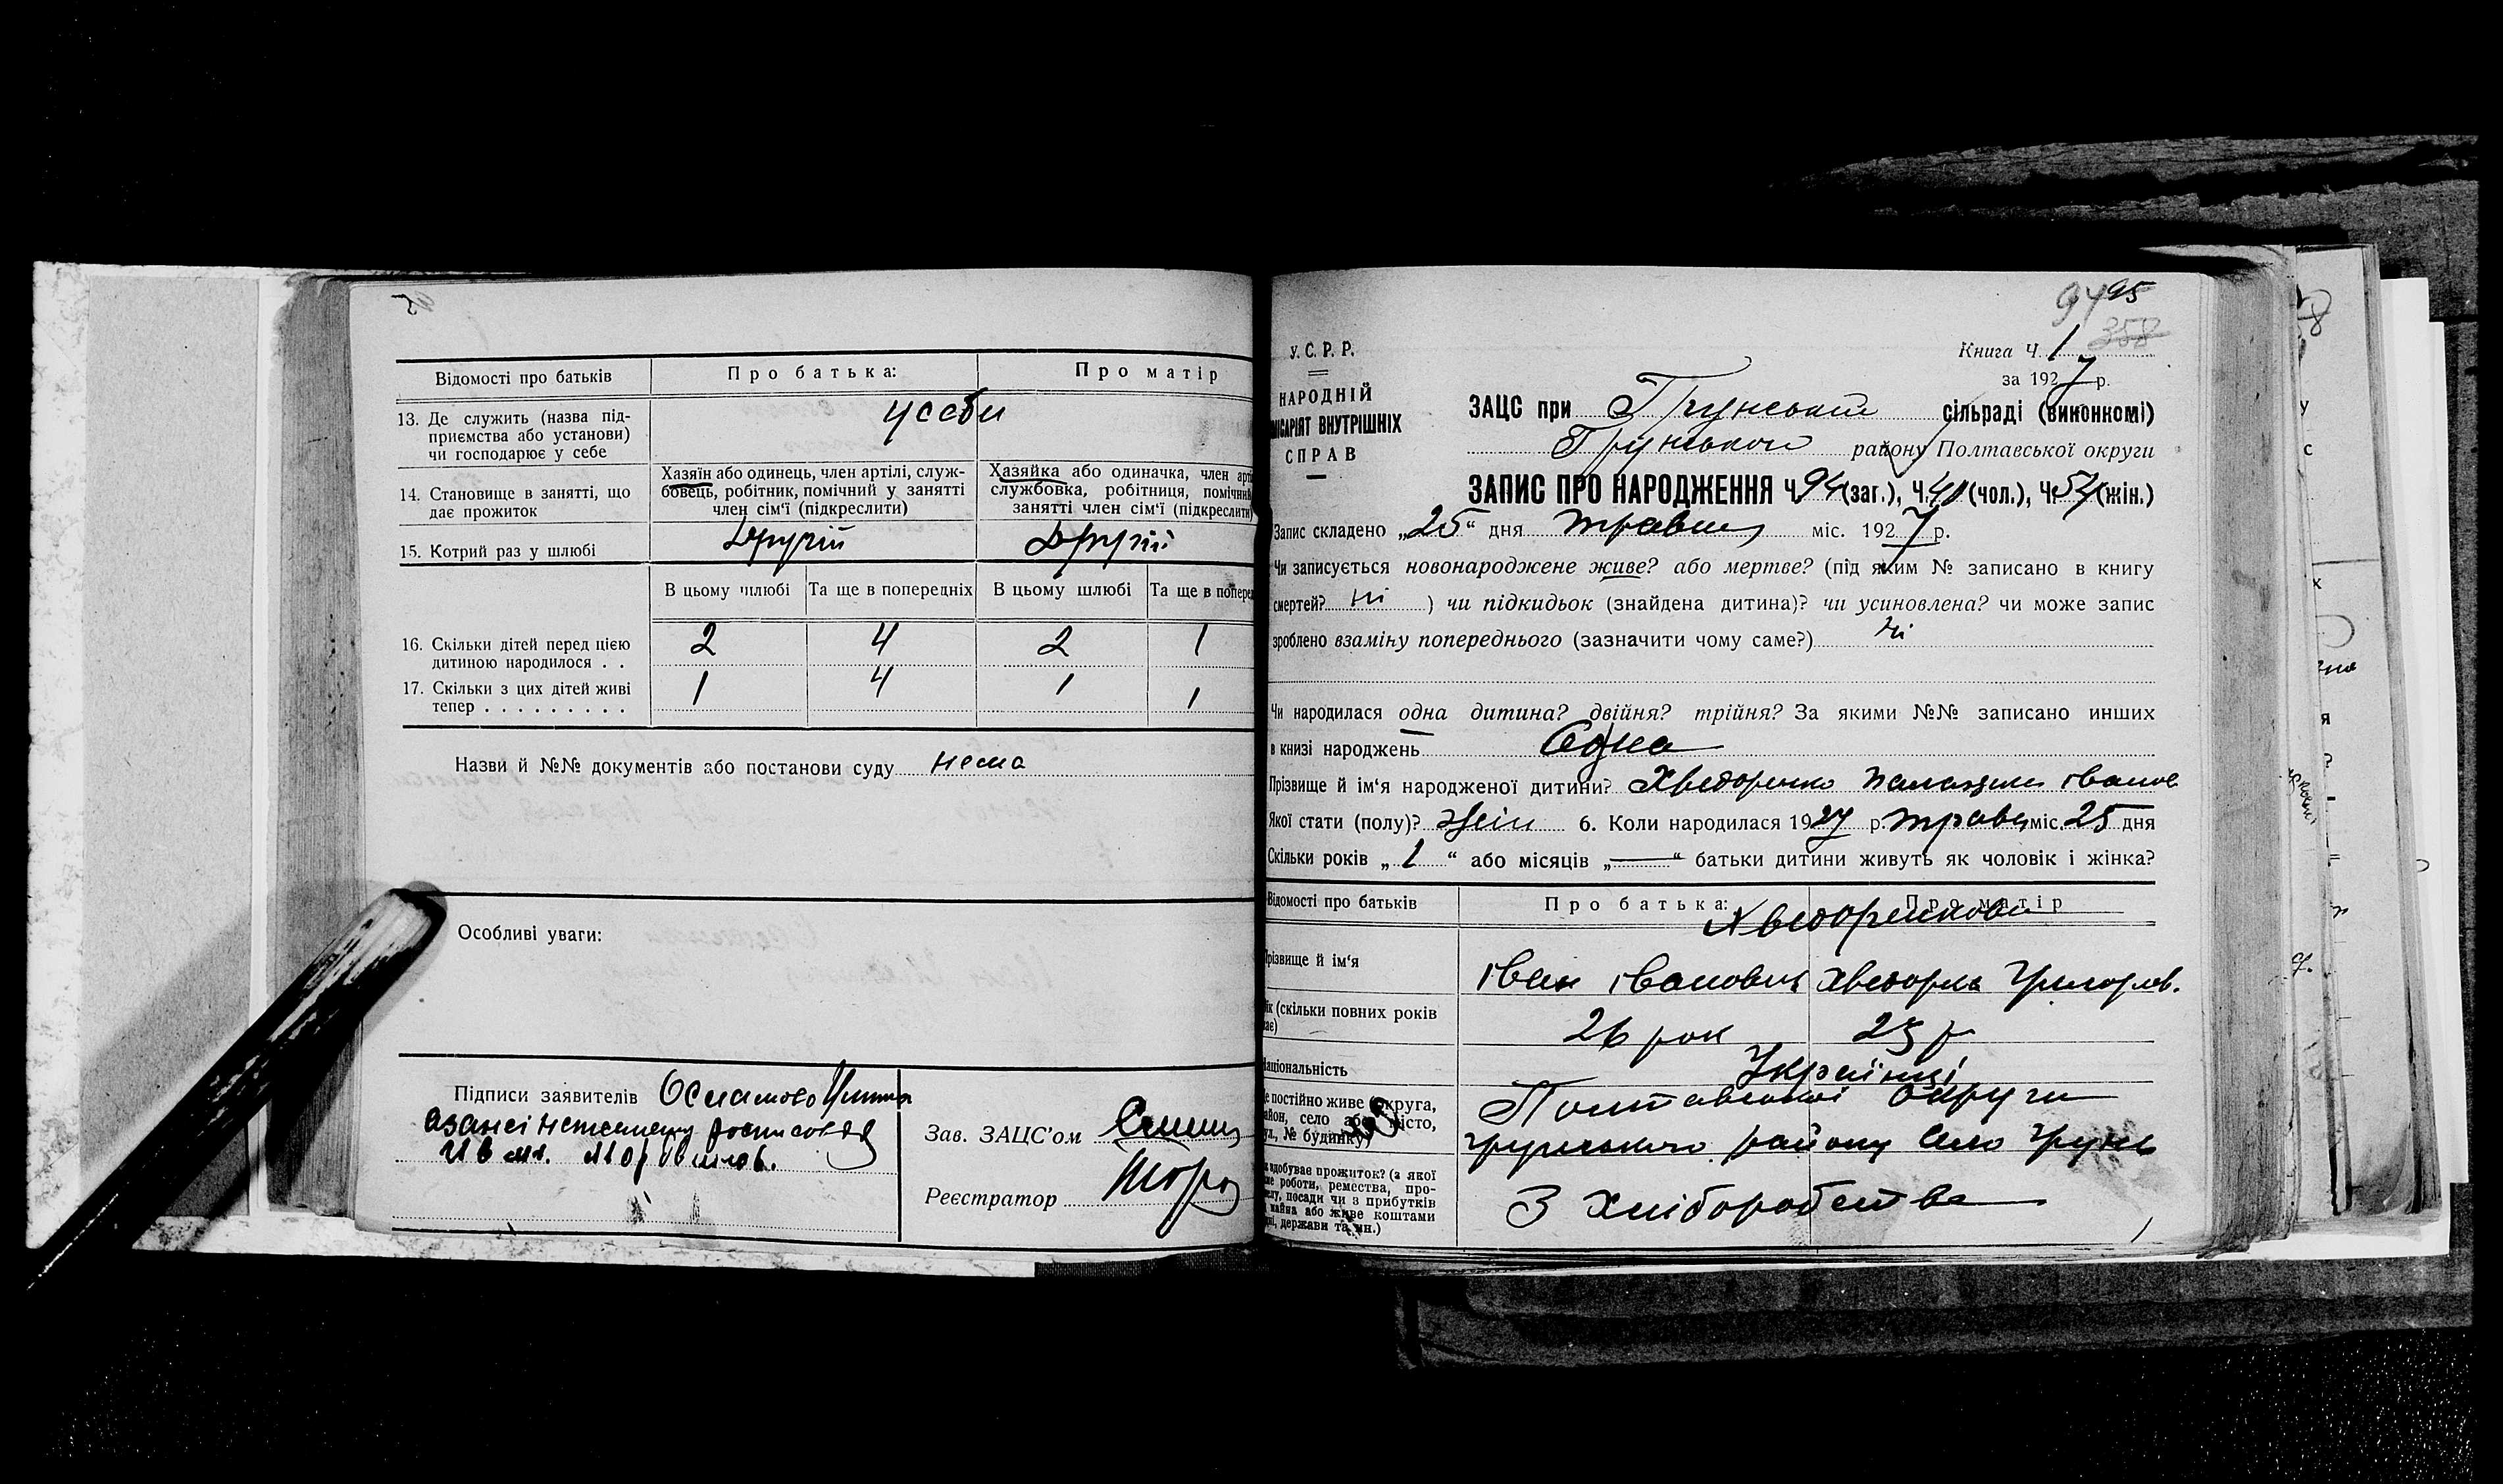 Відомості про батьків
Про батька:
Про матір
13. Де служить (назва під-
приємства або установи)
чи господарює у себе
у себи
14. Становище в занятті, що
дає прожиток
Хазяїн або одинець, член артілі, служ-
бовець, робітник, помічний у занятті
член сім'ї (підкреслити)
Хазяйка або одиначка, член арті
службовка, робітниця, помічний
занятті член сім'ї (підкреслити)
15. Котрий раз у шлюбі
Другій
Другій
В цьому шлюбі
Та ще в попередніх
В цьому шлюбі
Та ще в поперед
16. Скільки дітей перед цією
дитиною народилося . .
2 4 2 1
17. Скільки з цих дітей живі
тепер . . . . . . . . .
1 4 1 1
Назви й №№ документів або постанови суду нема
Особливі уваги:
Підписи заявителів
Зав. ЗАЦС'ом
Реєстратор
94 95
358
У. С. Р. Р.
НАРОДНІЙ
МІСАРІЯТ ВНУТРІШНІХ
СПРАВ
Книга Ч. 1
за 1927 р.
ЗАЦС при Грунській сільраді (виконкомі)
Грунського району Полтавської округи
ЗАПИС ПРО НАРОДЖЕННЯ Ч. 94 (заг.), Ч. 40 (чол.), Ч. 54 (жін.)
Запис складено „25“ дня травня міс. 1927 р.
Чи записується новонароджене живе? або мертве? (під яким № записано в книгу
смертей? ні ) чи підкидьок (знайдена дитина)? чи усиновлена? чи може запис
зроблено взаміну попереднього (зазначити чому саме?) ні
Чи народилася одна дитина? двійня? трійня? За якими №№ записано инших
в книзі народжень Одна
Прізвище й ім'я народженої дитини? Хведоренко Палажка Іванов
Якої стати (полу)? жін 6. Коли народилася 1927 р. травн міс. 25 дня
Скільки років „1“ або місяців „—“ батьки дитини живуть як чоловік і жінка?
Відомості про батьків
Про батька:
Про матір
Хведоренкови
Прізвище й ім'я
Іван Іванович
Хведорка Григоров.
Вік (скільки повних років
має)
26 рок
25 р
Національність
Українці
Де постійно живе (округа,
район, село або місто,
вул., № будинку)
Полтавської округи
грунського району село Грунь
здобуває прожиток? (з якої
роботи, ремества, про-
посади чи з прибутків
майна або живе коштами
держави та ин.)
З Хліборобства